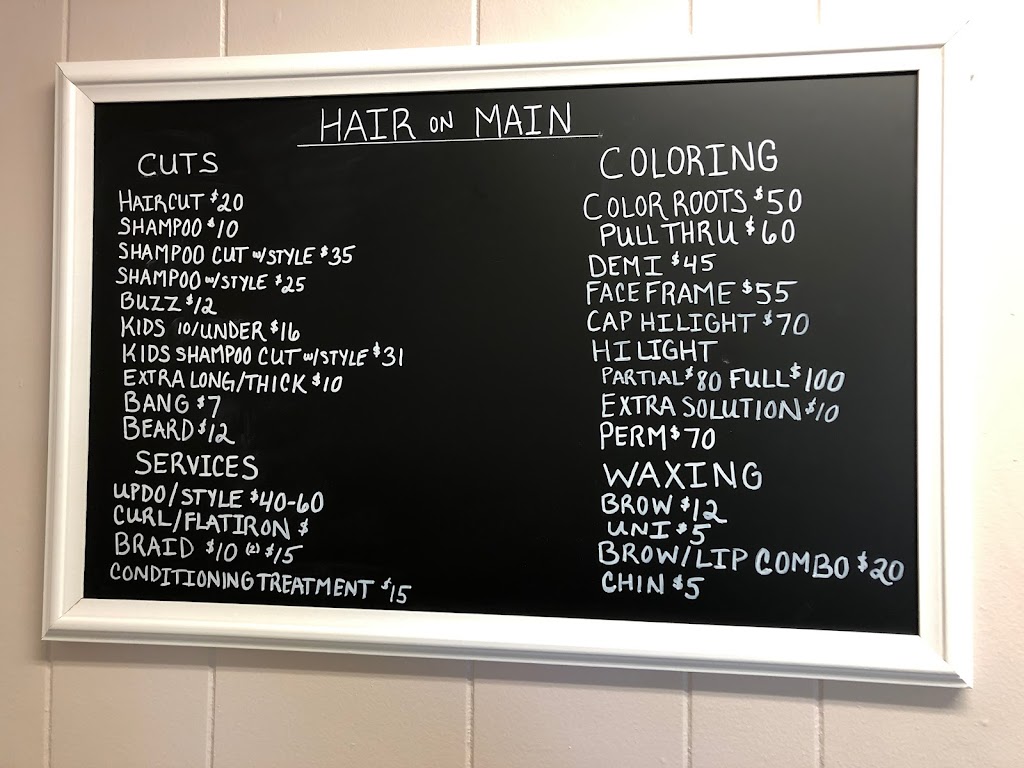 HAIR ON MAIN
CUTS
HAIRCUT $20
SHAMPOO $10
SHAMPOO CUT w/STYLE $35
SHAMPOO w/STYLE $25
BUZZ $12
KIDS 10/UNDER $16
KIDS SHAMPOO CUT w/STYLE $31
EXTRA LONG/THICK $10
BANG $7
BEARD $12
SERVICES
UPDO/STYLE $40-60
CURL/FLATIRON $
BRAID $10 (2) $15
CONDITIONING TREATMENT $15
COLORING
COLOR ROOTS $50
PULL THRU $60
DEMI $45
FACE FRAME $55
CAP HILIGHT $70
HILIGHT
PARTIAL $80 FULL $100
EXTRA SOLUTION $10
PERM $70
WAXING
BROW $12
UNI $5
BROW/LIP COMBO $20
CHIN $5